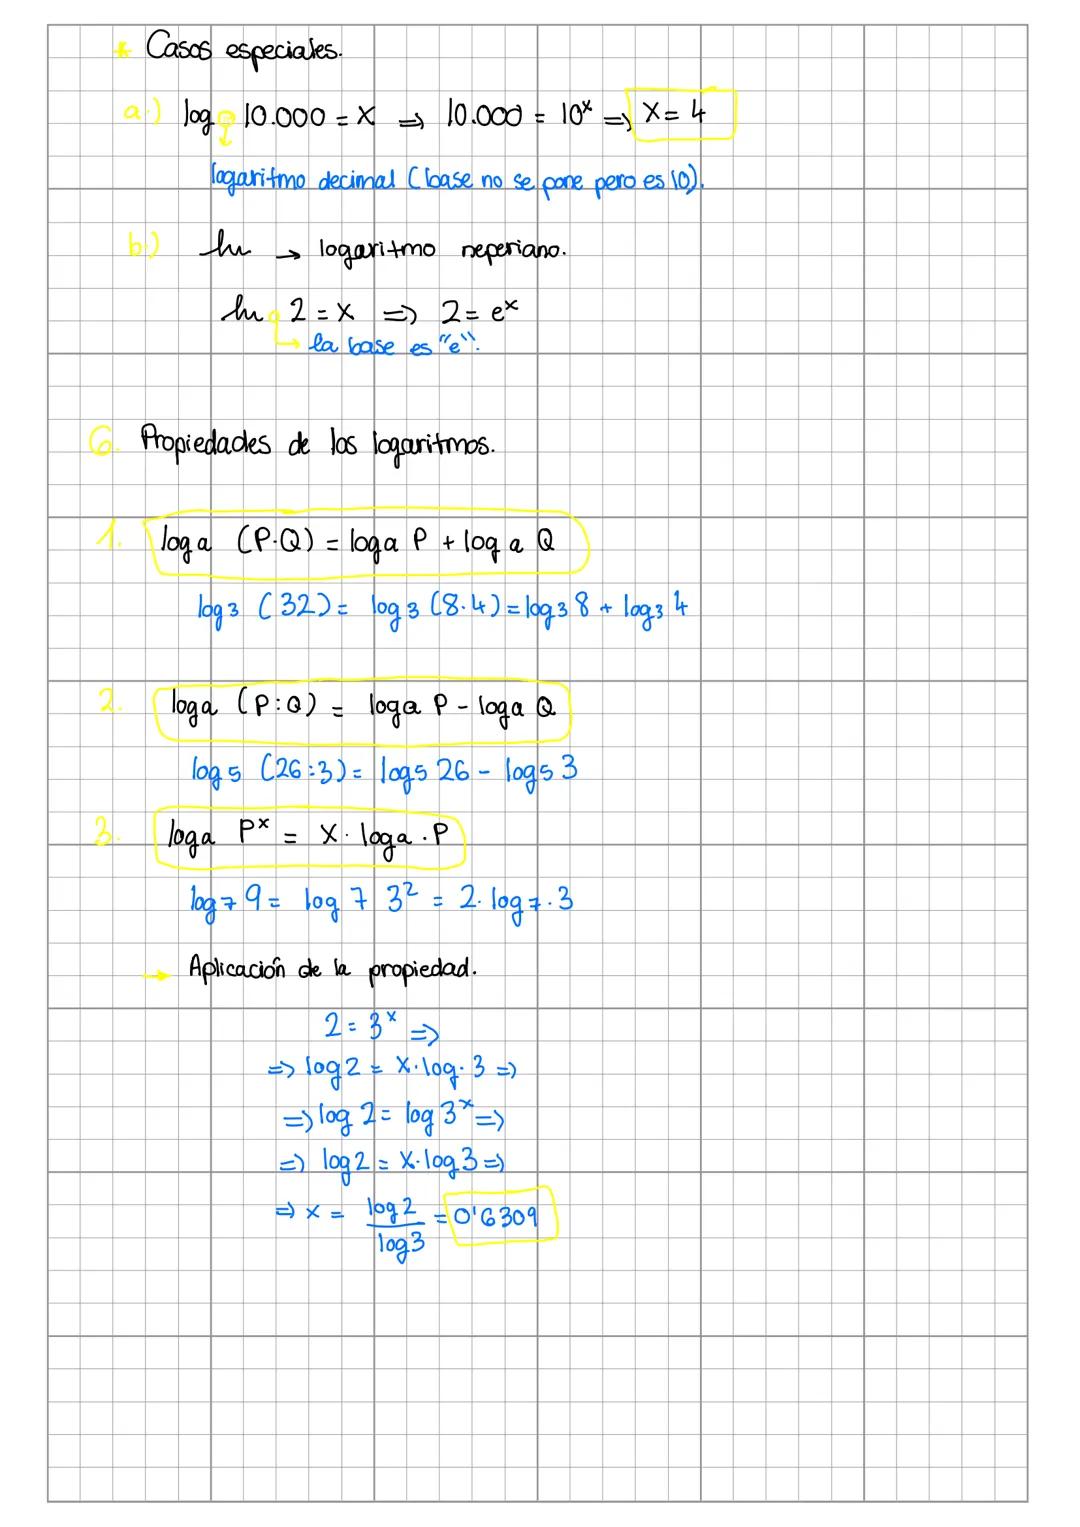 * Casos especiales.
a.) log 10.000 = x ⇒ 10.000 = 10ˣ ⇒ x = 4
logaritmo decimal (base no se pone pero es 10).
b.) ln → logaritmo neperiano.
ln 2 = x ⇒ 2 = eˣ
→ la base es "e".
6. Propiedades de los logaritmos.
1. log a (P·Q) = log a P + log a Q
log 3 (32) = log 3 (8·4) = log 3 8 + log 3 4
2. log a (P:Q) = log a P - log a Q
log 5 (26:3) = log 5 26 - log 5 3
3. log a Pˣ = x · log a · P
log 7 9 = log 7 3² = 2 · log 7 · 3
→ Aplicación de la propiedad.
2 = 3ˣ ⇒
⇒ log 2 = x · log · 3 ⇒
⇒ log 2 = log 3ˣ ⇒
⇒ log 2 = x · log 3 ⇒
⇒ x = log 2 / log 3 = 0'6309